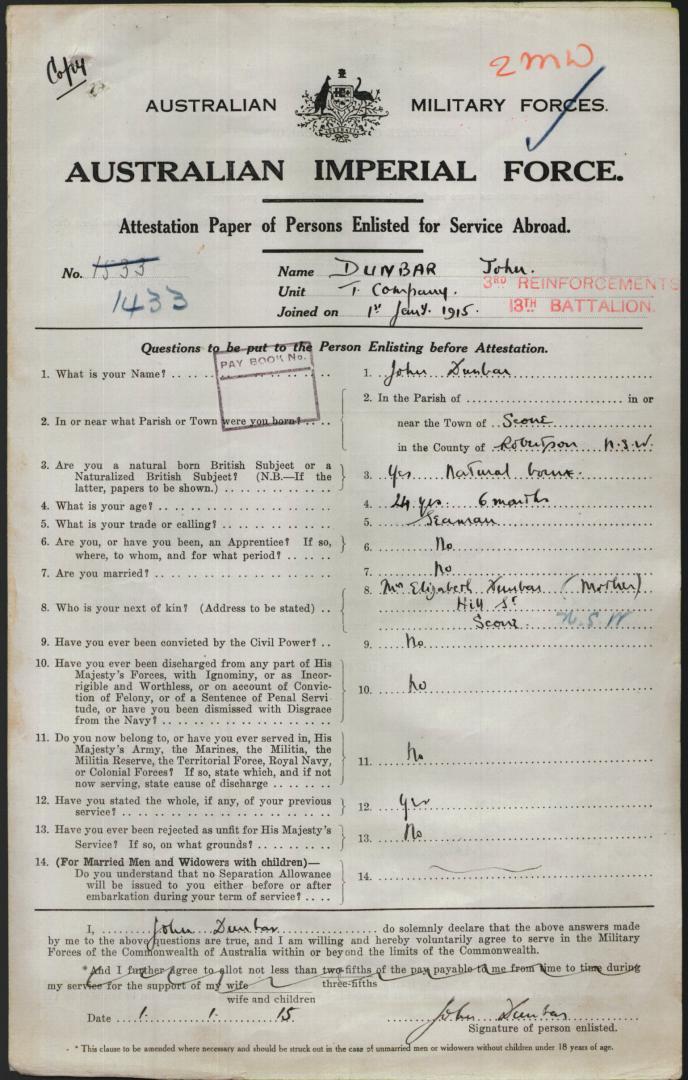 Copy
2 MW
AUSTRALIAN MILITARY FORCES.
AUSTRALIAN IMPERIAL FORCE.
Attestation Paper of Persons Enlisted for Service Abroad.
No. 1533
1433
Name DUNBAR John.
Unit T. Company.
3RD REINFORCEMENTS
13TH BATTALION.
Joined on 1st Jany. 1915.
Questions to be put to the Person Enlisting before Attestation.
PAY BOOK No.
1. What is your Name? 1. John Dunbar
2. In or near what Parish or Town were you born? 2. In the Parish of in or
near the Town of Scone
in the County of Robertson N.S.W.
3. Are you a natural born British Subject or a
Naturalized British Subject? (N.B.—If the
latter, papers to be shown.) 3. Yes Natural
4. What is your age? 4. 24 yrs. 6 months
5. What is your trade or calling? 5. Seaman
6. Are you, or have you been, an Apprentice? If so,
where, to whom, and for what period? 6. No
7. Are you married? 7. No
8. Who is your next of kin? (Address to be stated) 8. Mrs Elizabeth Dunbar (Mother)
Hill St
Scone N S W
9. Have you ever been convicted by the Civil Power? 9. No
10. Have you ever been discharged from any part of His
Majesty's Forces, with Ignominy, or as Incor-
rigible and Worthless, or on account of Convic-
tion of Felony, or of a Sentence of Penal Servi-
tude, or have you been dismissed with Disgrace
from the Navy? 10. No
11. Do you now belong to, or have you ever served in, His
Majesty's Army, the Marines, the Militia, the
Militia Reserve, the Territorial Force, Royal Navy,
or Colonial Forces? If so, state which, and if not
now serving, state cause of discharge 11. No
12. Have you stated the whole, if any, of your previous
service? 12. Yes
13. Have you ever been rejected as unfit for His Majesty's
Service? If so, on what grounds? 13. No
14. (For Married Men and Widowers with children)—
Do you understand that no Separation Allowance
will be issued to you either before or after
embarkation during your term of service? 14.
I, John Dunbar do solemnly declare that the above answers made
by me to the above questions are true, and I am willing and hereby voluntarily agree to serve in the Military
Forces of the Commonwealth of Australia within or beyond the limits of the Commonwealth.
*And I further agree to allot not less than two-fifths of the pay payable to me from time to time during
three-fifths
my service for the support of my wife
wife and children
Date 1. 1. 15 John Dunbar
Signature of person enlisted.
* This clause to be amended where necessary and should be struck out in the case of unmarried men or widowers without children under 18 years of age.